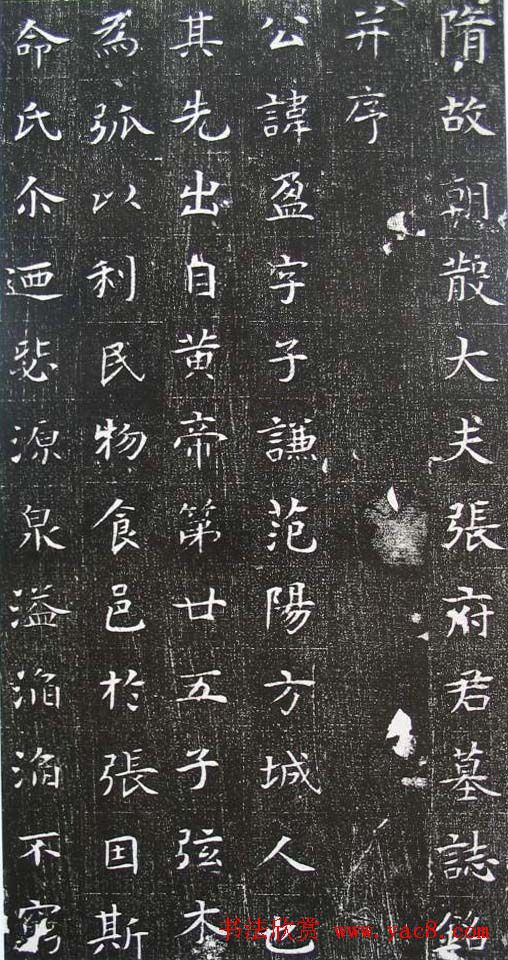 隋故朝散大夫張府君墓誌銘
并序
公諱盈字子謙范陽方城人也
其先出自黄帝第廿五子弦木
為弧以利民物食邑於張因斯
命氏尒迺源泉溢滔滔不窮
书法欣赏 www.yac8.com